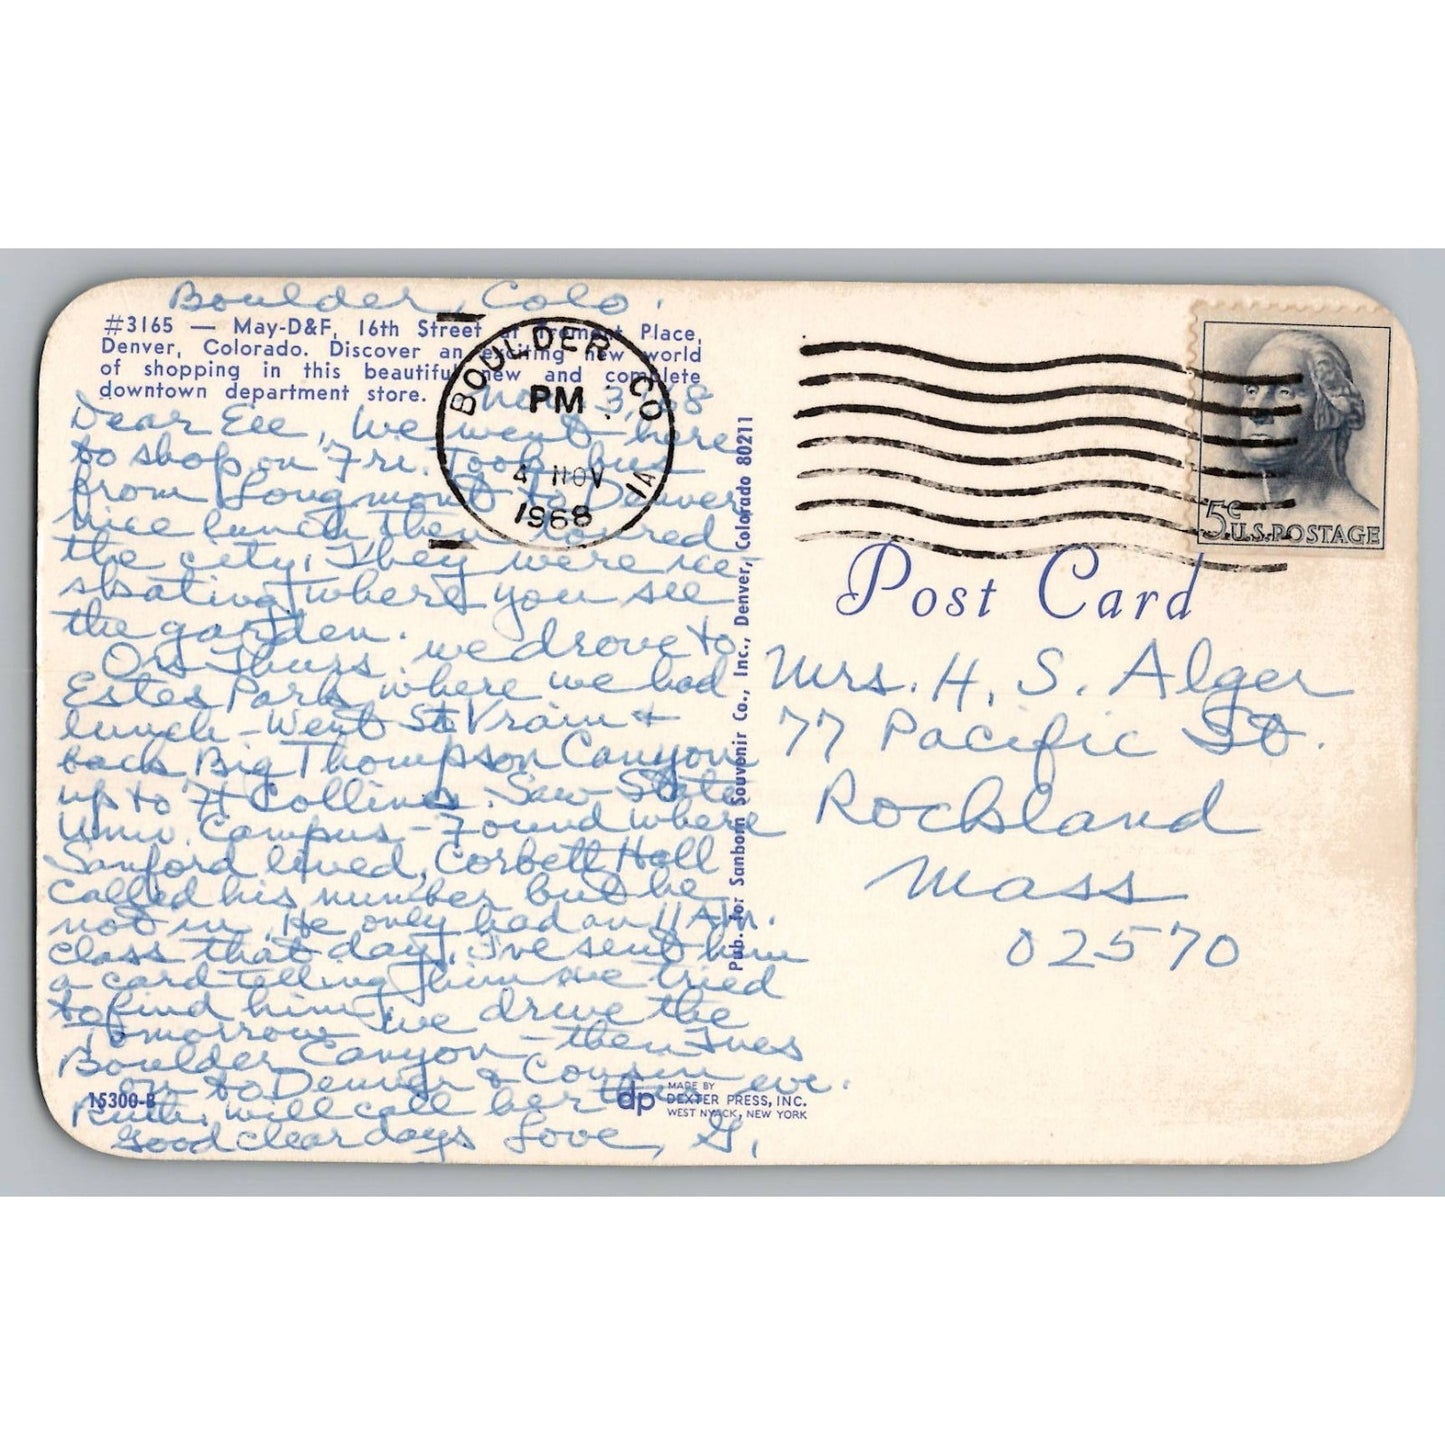 Boulder, Colo.
#3165 — May-D&F, 16th Street at Tremont Place,
Denver, Colorado. Discover an exciting new world
of shopping in this beautiful new and complete
downtown department store.
Nov. 3, 68
Dear Ele, We went here
to shop on Fri. Took bus
from Longmont to Denver
nice lunch then toured
the city. They were ice
skating where you see
the garden.
On Thurs. we drove to
Estes Park where we had
lunch – Went St Vrain &
back Big Thompson Canyon
up to Ft Collins. Saw State
Univ. Campus – Found where
Sanford lived, Corbett Hall
Called his number but he
not in. He only had an 11 AM.
class that day. I've sent him
a card telling him we tried
to find him.
Tomorrow we drive the
Boulder Canyon – then Tues
on to Denver & Cousin
Ruth, will call her this eve.
Good clear days Love, G.
15300-B
BOULDER CO
PM
4 NOV
1968
1A
Pub. for Sanborn Souvenir Co., Inc., Denver, Colorado 80211
dp MADE BY
DEXTER PRESS, INC.
WEST NYACK, NEW YORK
5c
U.S. POSTAGE
Post Card
Mrs. H. S. Alger
77 Pacific St.
Rockland
Mass
02570